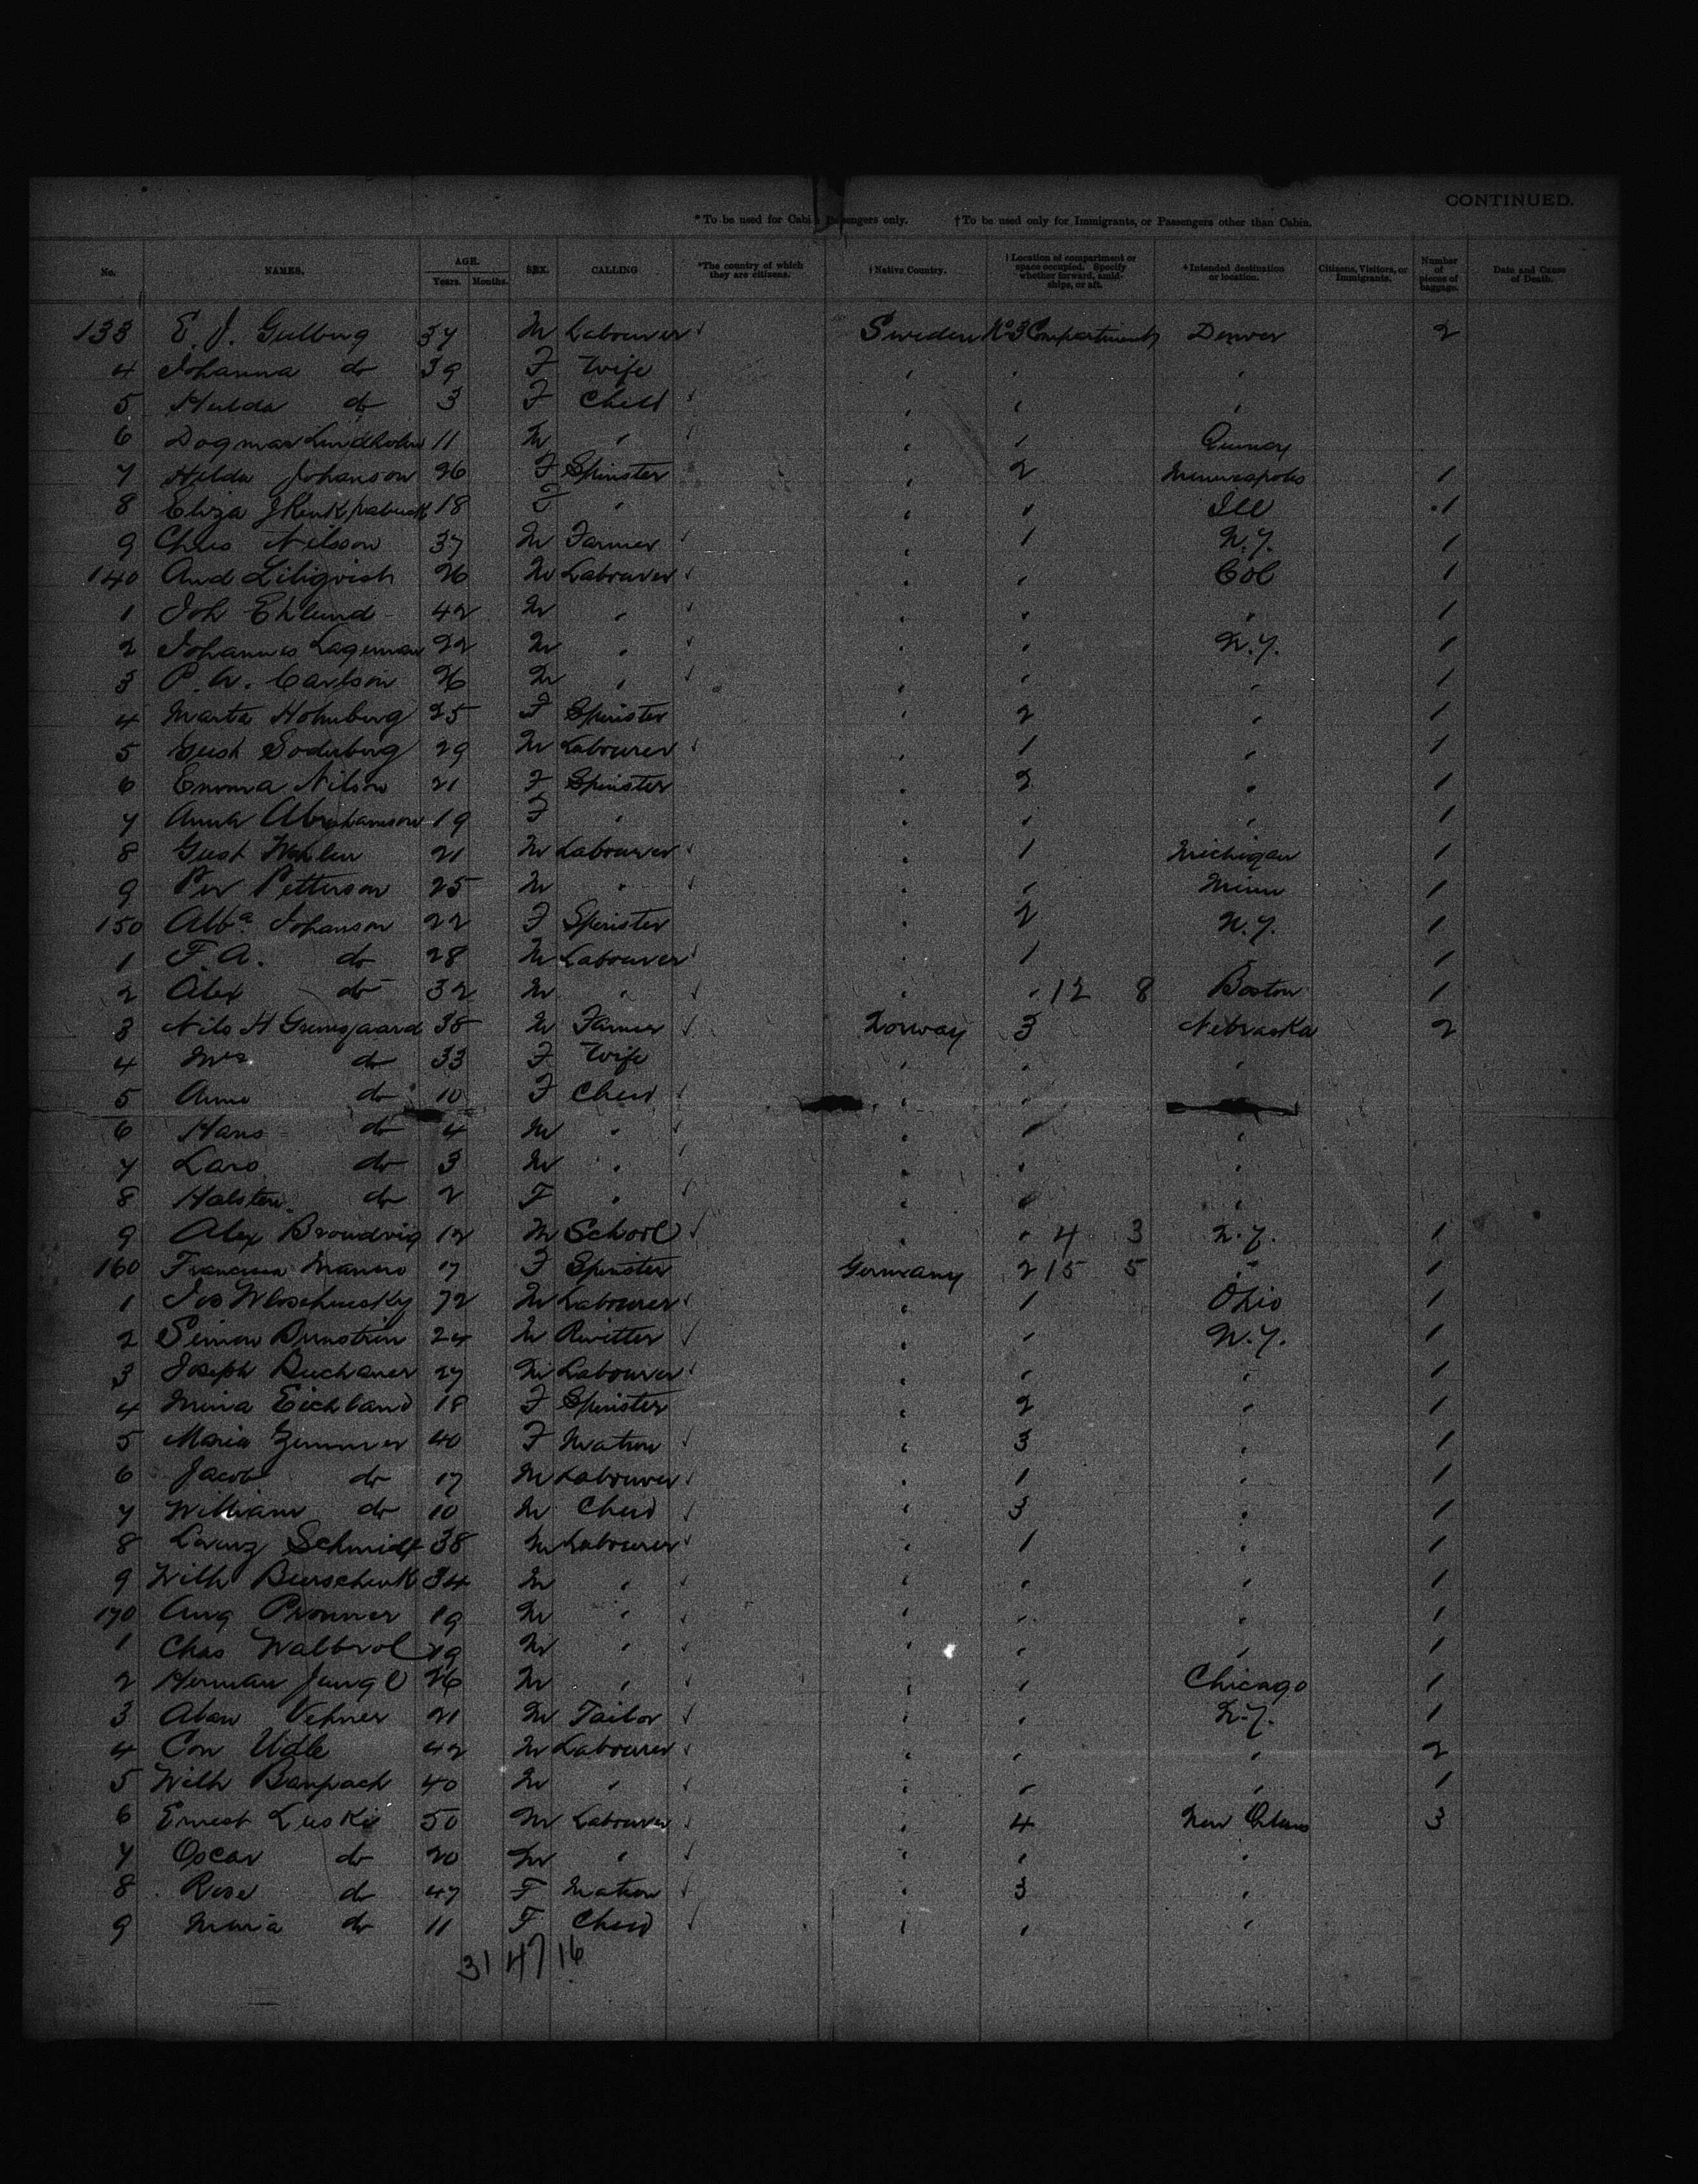 CONTINUED.
* To be used for Cabin Passengers only. † To be used only for Immigrants, or Passengers other than Cabin.
No. NAMES. AGE. Years. Months. SEX. CALLING *The country of which they are citizens. †Native Country. †Location of compartment or space occupied. Specify whether forward, amidships, or aft. †Intended destination or location. Citizens, Visitors, or Immigrants. Number of pieces of baggage. Date and Cause of Death.
133 E. J. Gulberg 37 M Labourer Sweden No 3 Compartment Denver 2
4 Johanna do 39 F Wife " " "
5 Hulda do 3 F Child " " "
6 Dagmar Lindholm 11 M " " 1 Quincy
7 Hilda Johanson 26 F Spinster " 2 Minneapolis 1
8 Eliza J 18 F " " " Ill 1
9 Chris Nilsson 37 M Farmer " 1 N.Y. 1
140 And Liliqvist 26 M Labourer " " Col 1
1 Joh Ehlund 42 M " " " " 1
2 Johannes Lagerman 22 M " " " N.Y. 1
3 P. A. Carlson 26 M " " " " 1
4 Marta Holmberg 25 F Spinster " 2 " 1
5 Gust Soderberg 29 M Labourer " 1 " 1
6 Emma Nilson 21 F Spinster " 2 " 1
7 Anna Abrahamson 19 F " " " " 1
8 Gust Wahlen 21 M Labourer " 1 Michigan 1
9 Per Petterson 25 M " " " Minn 1
150 Alba Johanson 22 F Spinster " 2 N.Y. 1
1 F A. do 28 M Labourer " 1 " 1
2 Alex do 32 M " " " 12 8 Boston 1
3 Nils H 38 M Farmer Norway 3 Nebraska 2
4 Mrs do 33 F Wife " " "
5 Anne do 10 F Child " "
6 Hans do 4 M " " " "
7 Lars do 3 M " " " "
8 Halsten do 2 F " " " "
9 Alex Broudvig 12 M School " " 4 3 N.Y. 1
160 Francisca 17 F Spinster Germany 2 15 5 " 1
1 Jos 72 M Labourer " 1 Ohio 1
2 Simon 24 M " " N.Y. 1
3 Joseph Buchaner 27 M Labourer " " " 1
4 Mina Eichland 18 F Spinster " 2 " 1
5 Maria Zimmer 40 F Matron " 3 " 1
6 Jacob do 17 M Labourer " 1 " 1
7 William do 10 M Child " 3 " 1
8 Lorenz Schmidt 38 M Labourer " 1 " 1
9 Wilh 34 M " " " " 1
170 Aug Pronner 19 M " " " " 1
1 Chas Walbrol 19 M " " " " 1
2 Herman Jungl 26 M " " " Chicago 1
3 Vehner 21 M Tailor " " N.Y. 1
4 Con Udle 42 M Labourer " " " 2
5 Wilh Banpach 40 M " " " " 1
6 Ernest Luski 50 M Labourer " 4 New Orleans 3
7 Oscar do 20 M " " " "
8 Rosa do 47 F Matron " 3 "
9 Maria do 11 F Child " " "
31 47 16